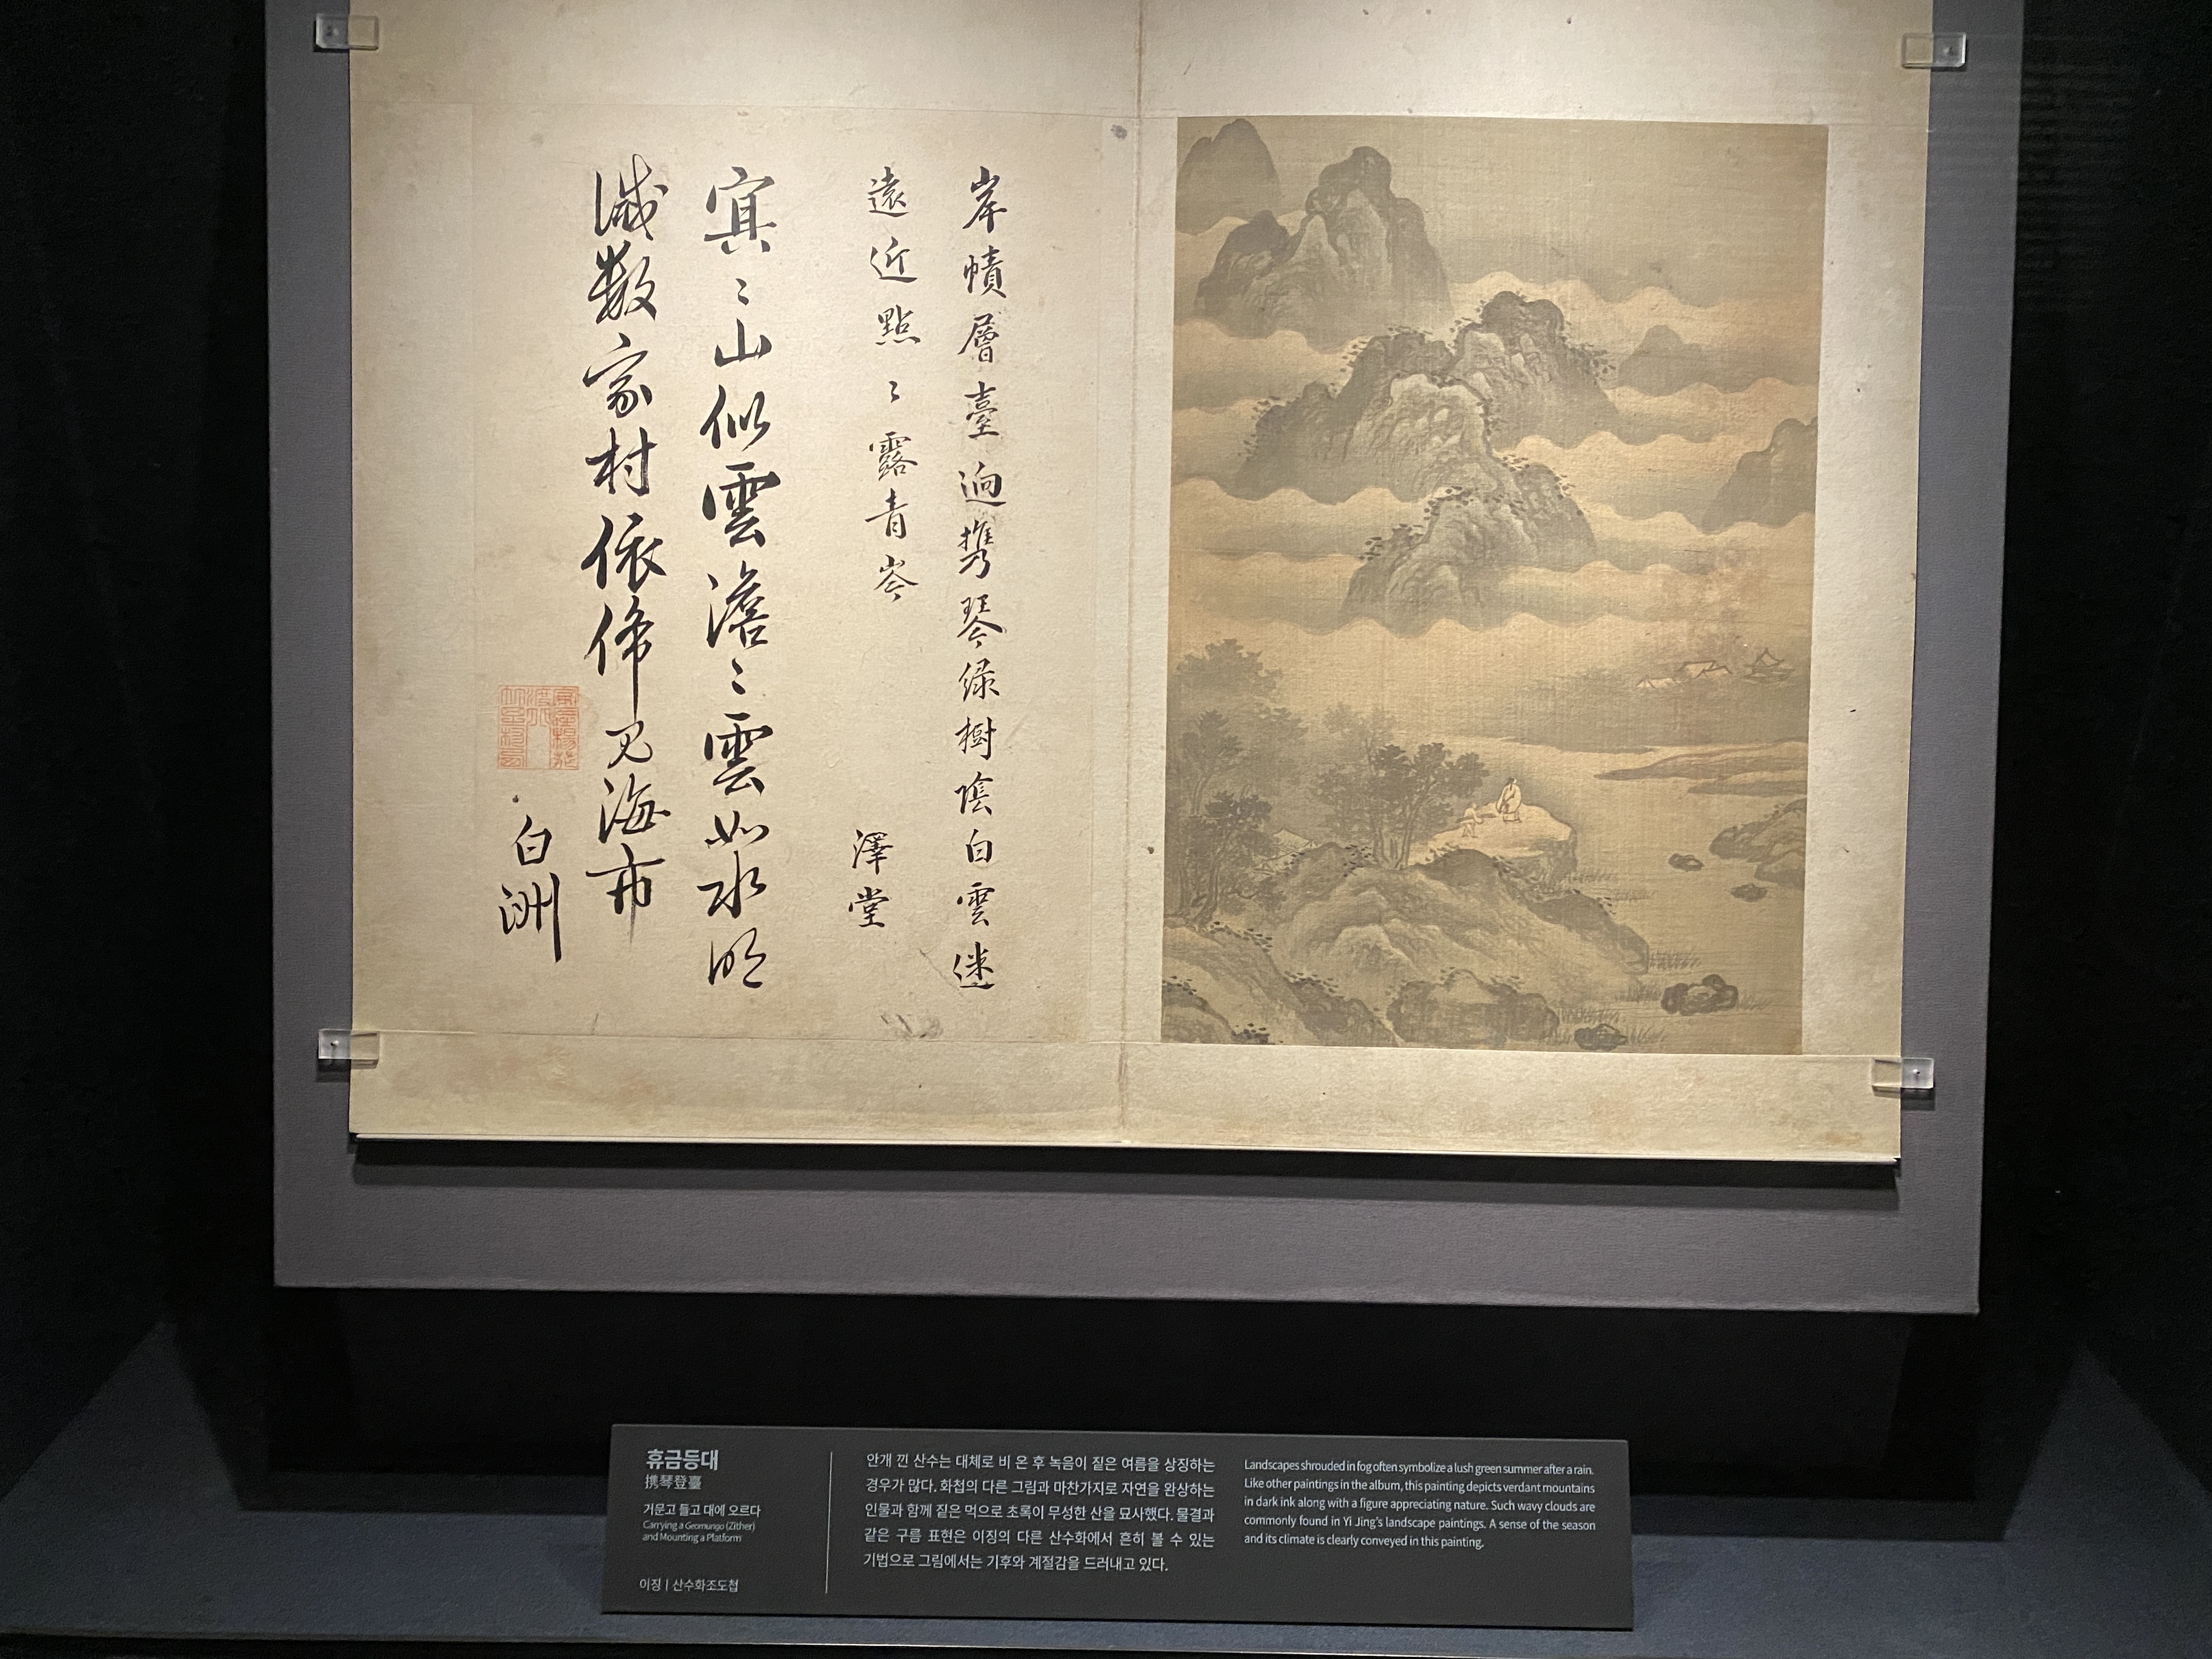 岸幘層臺逈携琴緑樹陰白雲迷
遠近點〻露青岑
澤堂
寘〻山似雲澹〻雲如水明
滅数家村依俙見海市
白洲
휴금등대
携琴登臺
거문고 들고 대에 오르다
Carrying a Geomungo (Zither)
and Mounting a Platform
이징 | 산수화조도첩
안개 낀 산수는 대체로 비 온 후 녹음이 짙은 여름을 상징하는
경우가 많다. 화첩의 다른 그림과 마찬가지로 자연을 완상하는
인물과 함께 짙은 먹으로 초록이 무성한 산을 묘사했다. 물결과
같은 구름 표현은 이징의 다른 산수화에서 흔히 볼 수 있는
기법으로 그림에서는 기후와 계절감을 드러내고 있다.
Landscapes shrouded in fog often symbolize a lush green summer after a rain.
Like other paintings in the album, this painting depicts verdant mountains
in dark ink along with a figure appreciating nature. Such wavy clouds are
commonly found in Yi Jing's landscape paintings. A sense of the season
and its climate is clearly conveyed in this painting.